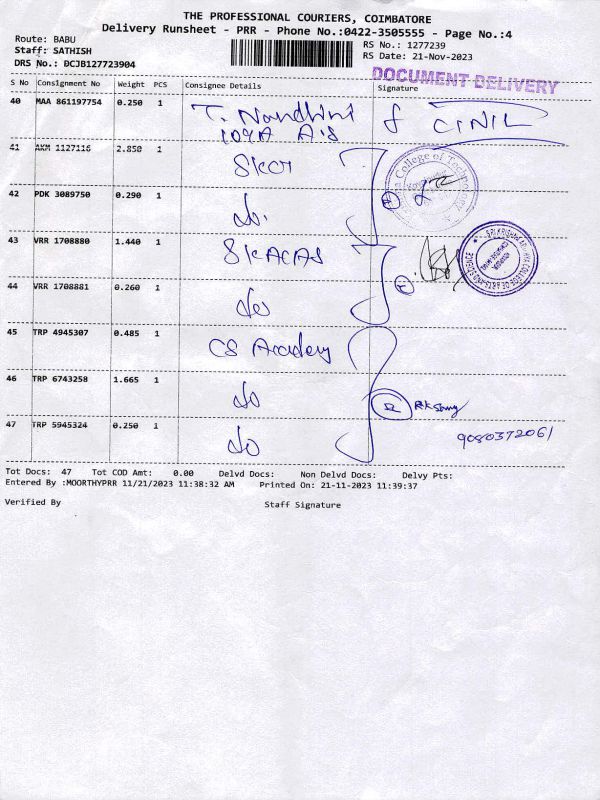 THE PROFESSIONAL COURIERS, COIMBATORE
Delivery Runsheet - PRR - Phone No.:0422-3505555 - Page No.:4
Route: BABU
RS No.: 1277239
Staff: SATHISH
RS Date: 21-Nov-2023
DRS No.: BCJB127723904
DOCUMENT DELIVERY
S No Consignment No Weight PCS Consignee Details Signature
40 MAA 861197754 0.250 1 T. Nandhini
109A A's
41 AKM 1127116 2.850 1 SKCT
College of Technology
42 PDK 3089750 0.290 1 do.
43 VRR 1708880 1.440 1 SKACAS
44 VRR 1708881 0.260 1 do
45 TRP 4945307 0.485 1 CS Academy
46 TRP 6743258 1.665 1 do
47 TRP 5945324 0.250 1 do
9080372061
Tot Docs: 47 Tot COD Amt: 0.00 Delvd Docs: Non Delvd Docs: Delvy Pts:
Entered By :MOORTHYPRR 11/21/2023 11:38:32 AM Printed On: 21-11-2023 11:39:37
Verified By Staff Signature